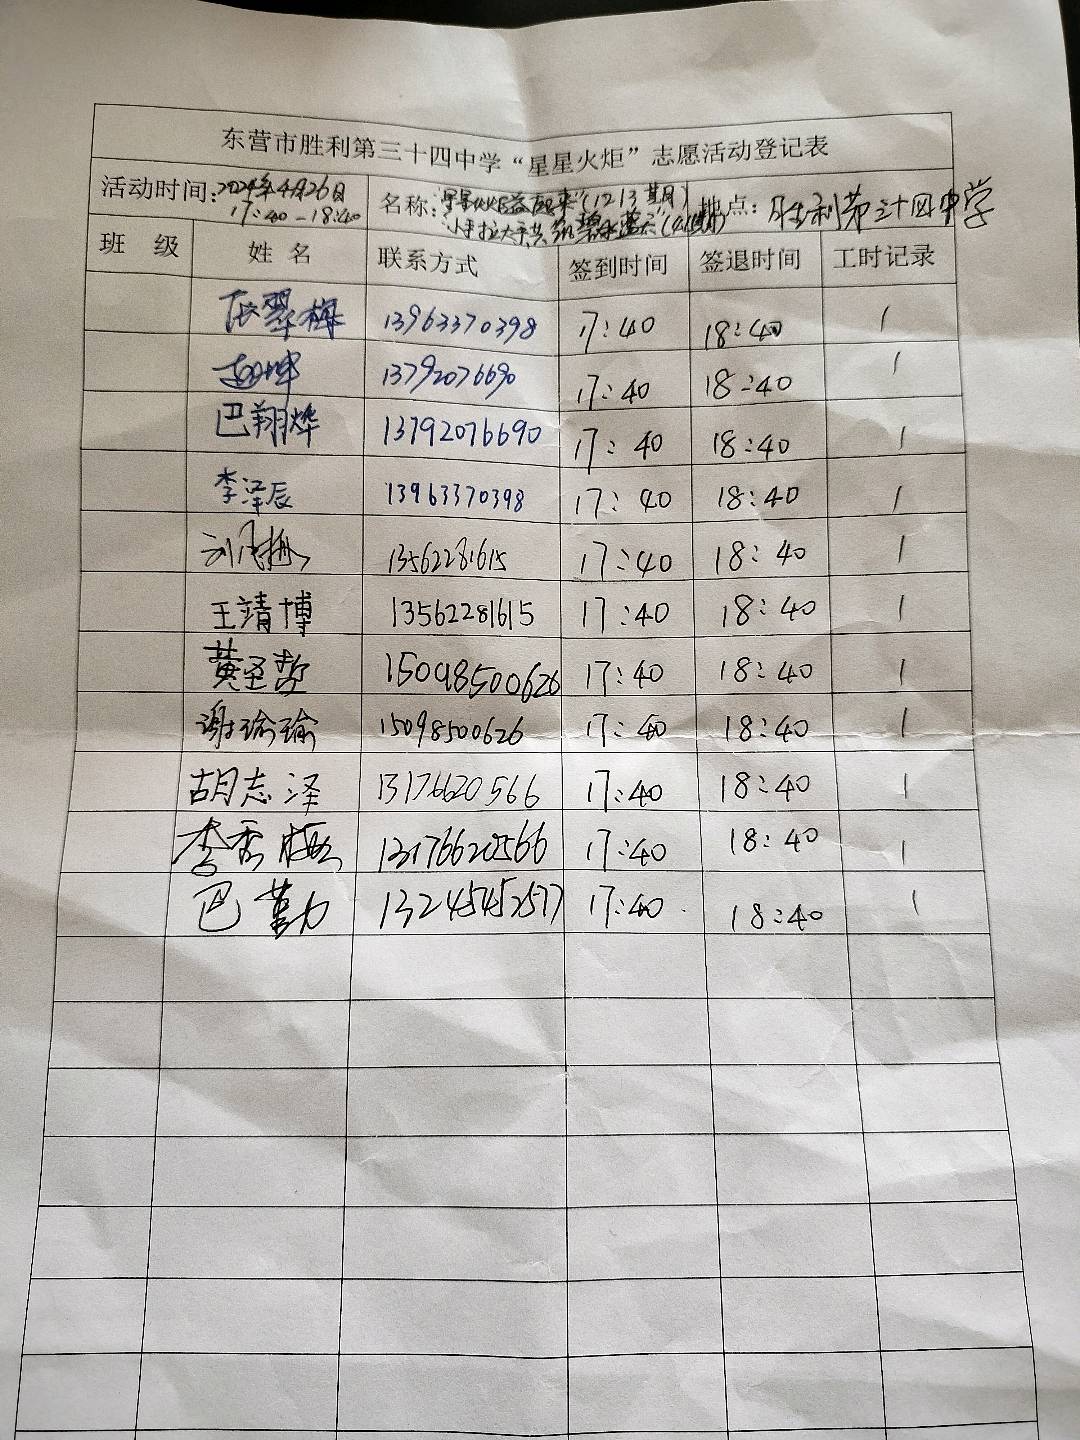 东营市胜利第三十四中学“星星火炬”志愿活动登记表
活动时间:2024年4月26日 名称: (12 13期) 地点: 胜利第三十四中学
17:40-18:40 小手拉大手共筑碧水蓝天
班 级 姓 名 联系方式 签到时间 签退时间 工时记录
翠梅 13963370398 17:40 18:40 1
坤 13792076690 17:40 18:40 1
巴翔烨 13792076690 17:40 18:40 1
李泽辰 13963370398 17:40 18:40 1
刘 梅 13562281615 17:40 18:40 1
王靖博 13562281615 17:40 18:40 1
黄圣哲 15098500626 17:40 18:40 1
谢瑜瑜 15098500626 17:40 18:40 1
胡志泽 13176620566 17:40 18:40 1
李雪梅 13176620566 17:40 18:40 1
巴 13245452577 17:40 18:40 1